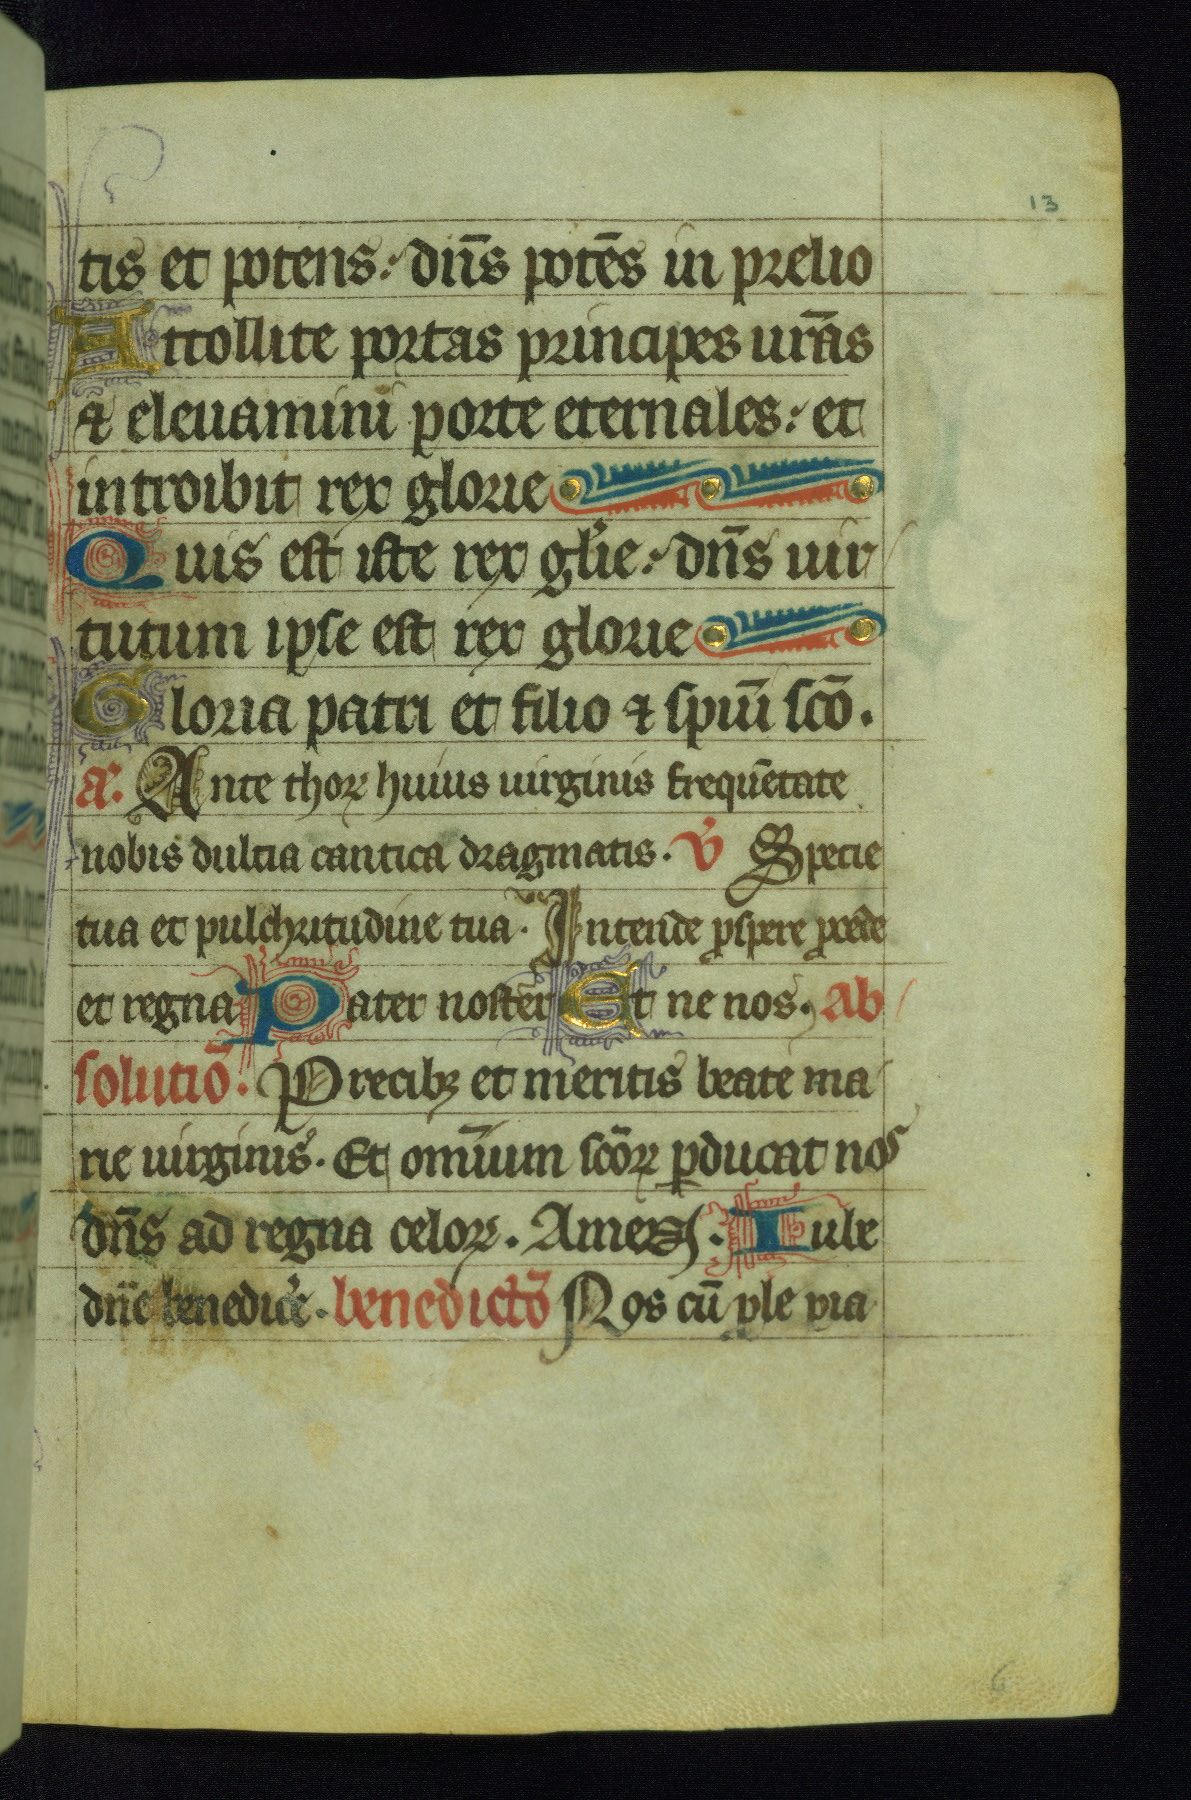 13
tis et potens: dn̄s potēs in prelio
Attollite portas principes ur̄as
⁊ eleuamini porte eternales: et
introibit rex glorie
Quis est iste rex gl'ie: dn̄s uir
tutum ipse est rex glorie
Gloria patri et filio ⁊ spiu̅i sc̄o.
a'. Ante thoꝝ huius uirginis frequētate
nobis dulcia cantica dragmatis. v̾ Specie
tua et pulchritudine tua. Intende ꝓspere ꝓcede
et regna Pater noster Et ne nos. Ab
solutiō. Precibꝫ et meritis beate ma
rie uirginis. Et omīum sc̄oꝝ ꝑducat nos
dn̄s ad regna celoꝝ. Amen. Iube
dn̄e benedic̾e. benedictō Nos cū ꝓle pia
6